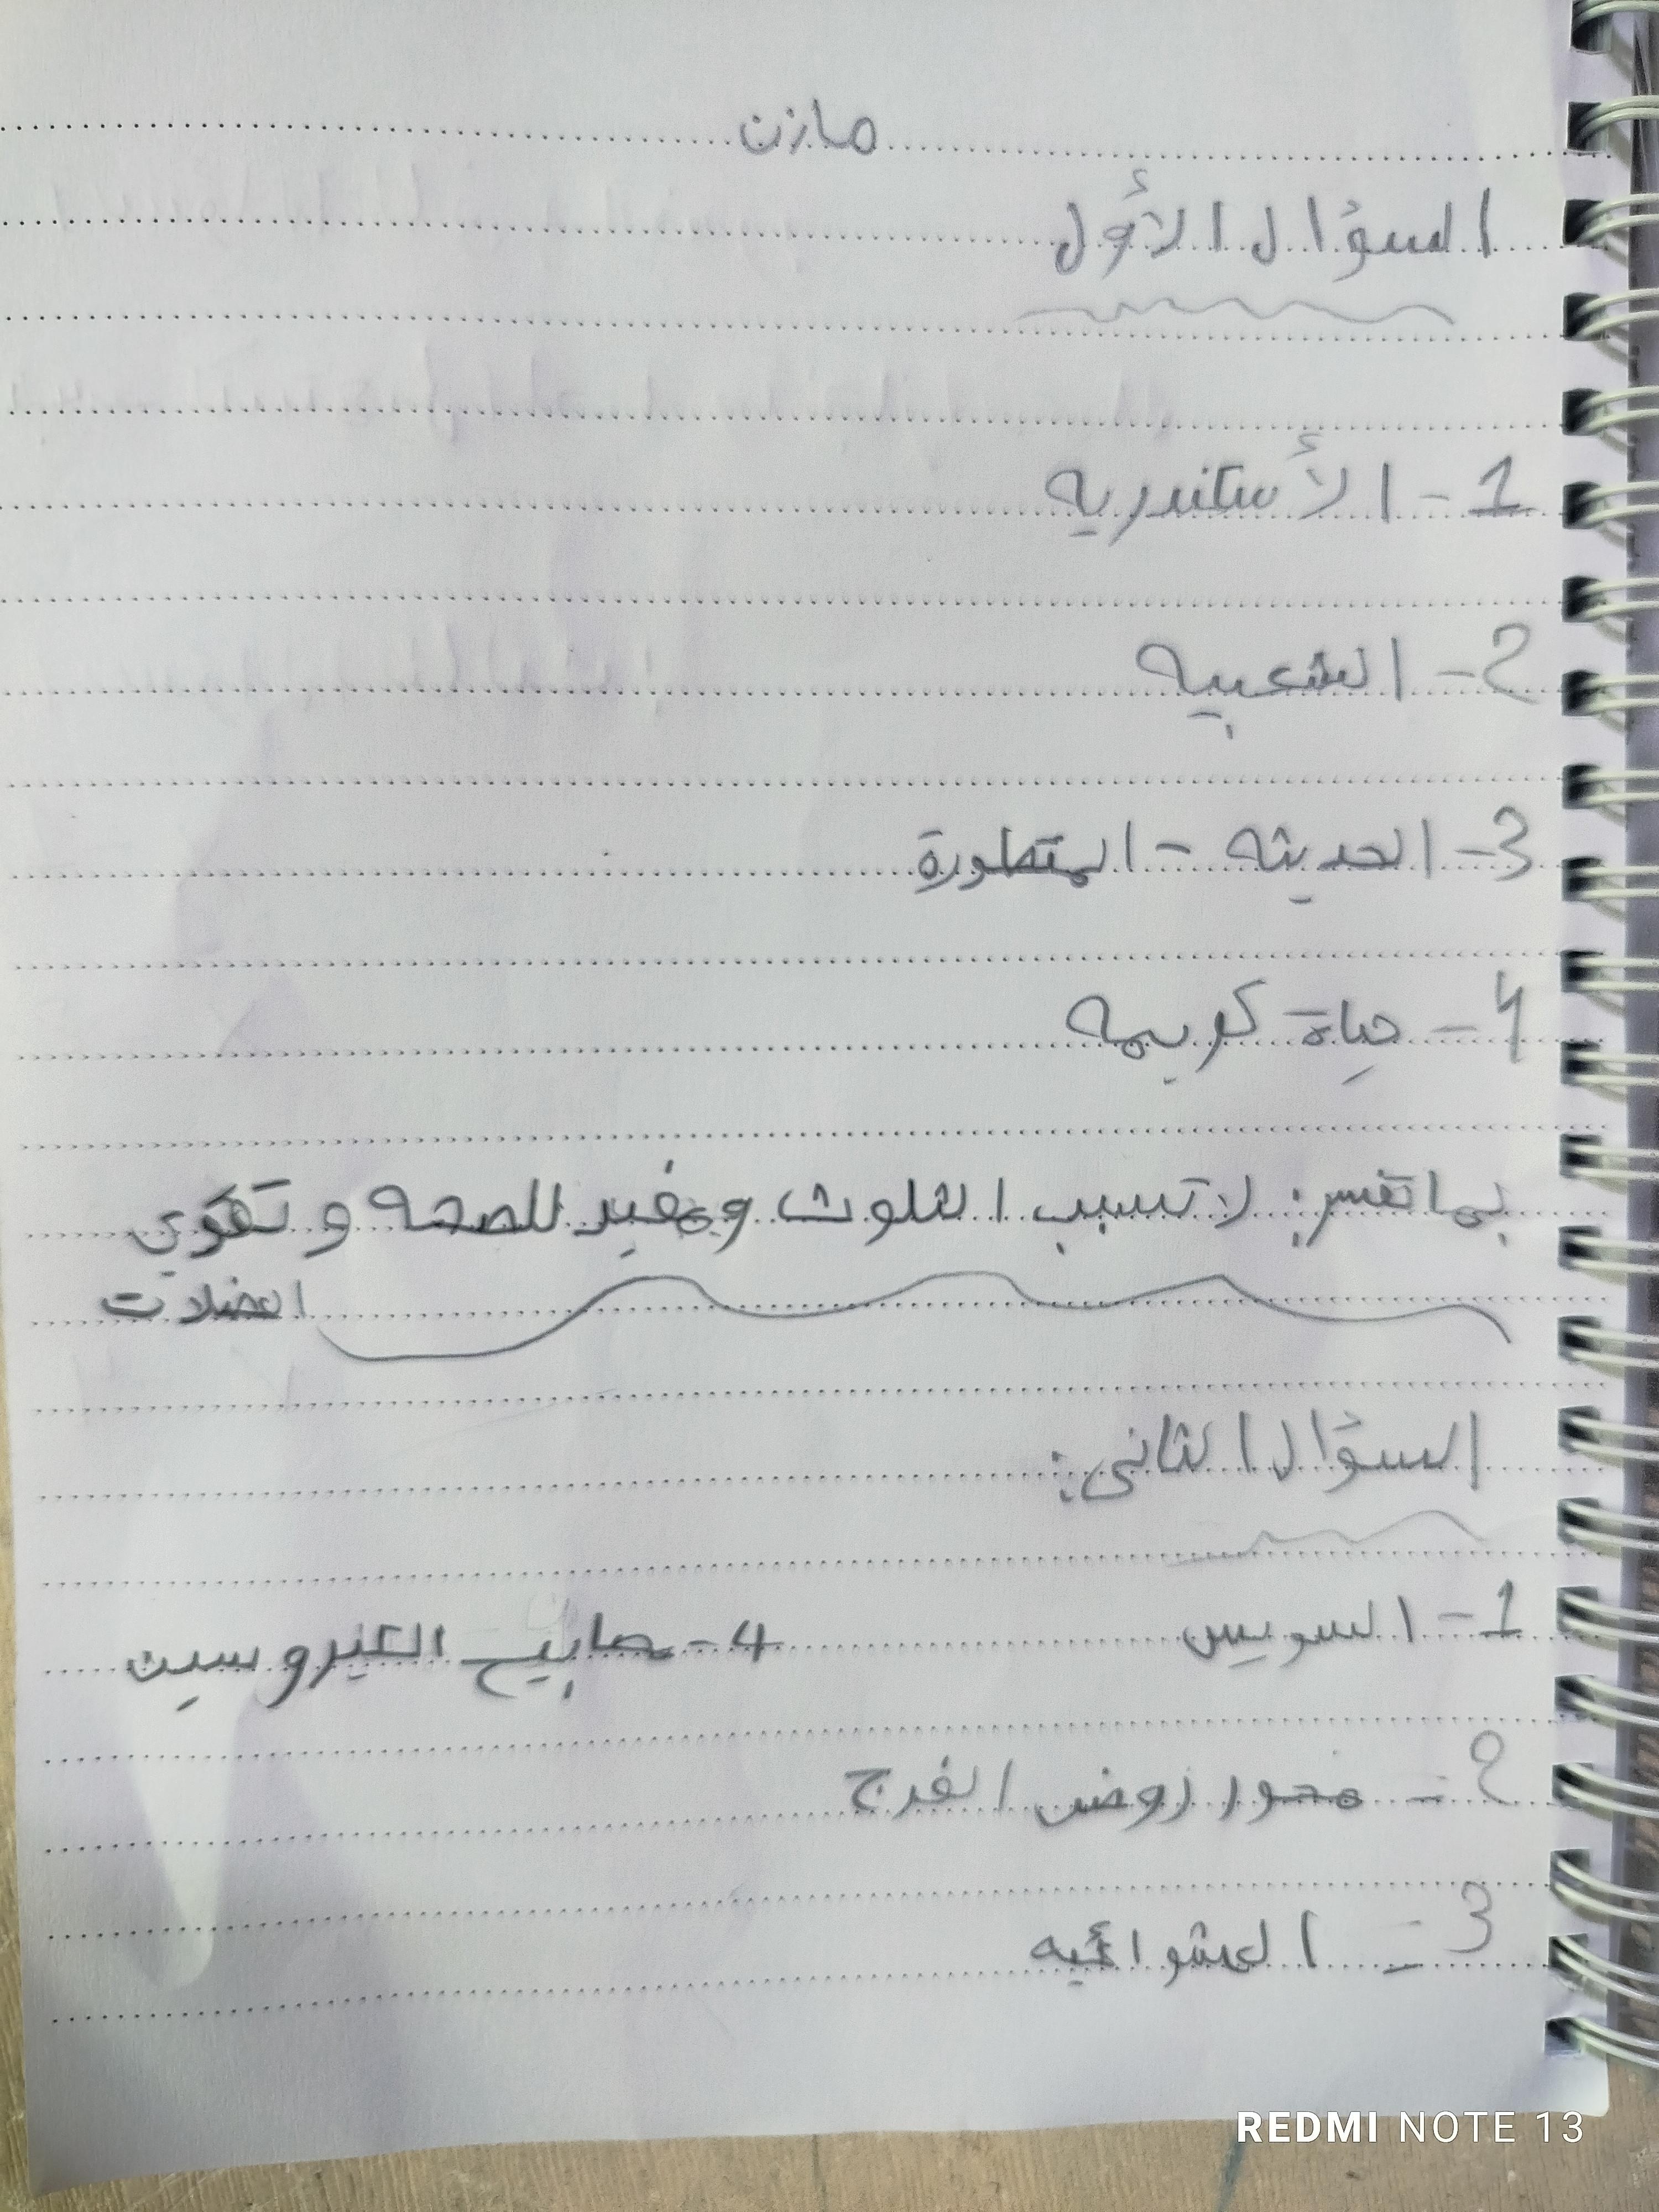 مازن
السؤال الأول
1- الأسكندريه
2- الشعبيه
3- الحديثه - المتطورة
4- حياة كريمه
بما تفسر: لا تسبب التلوث ومفيد للصحه وتقوي
العضلات
السؤال الثانى:
1- السويس
4- صابيح الكيروسين
2- محور روض الفرج
3- العشوائيه
REDMI NOTE 13